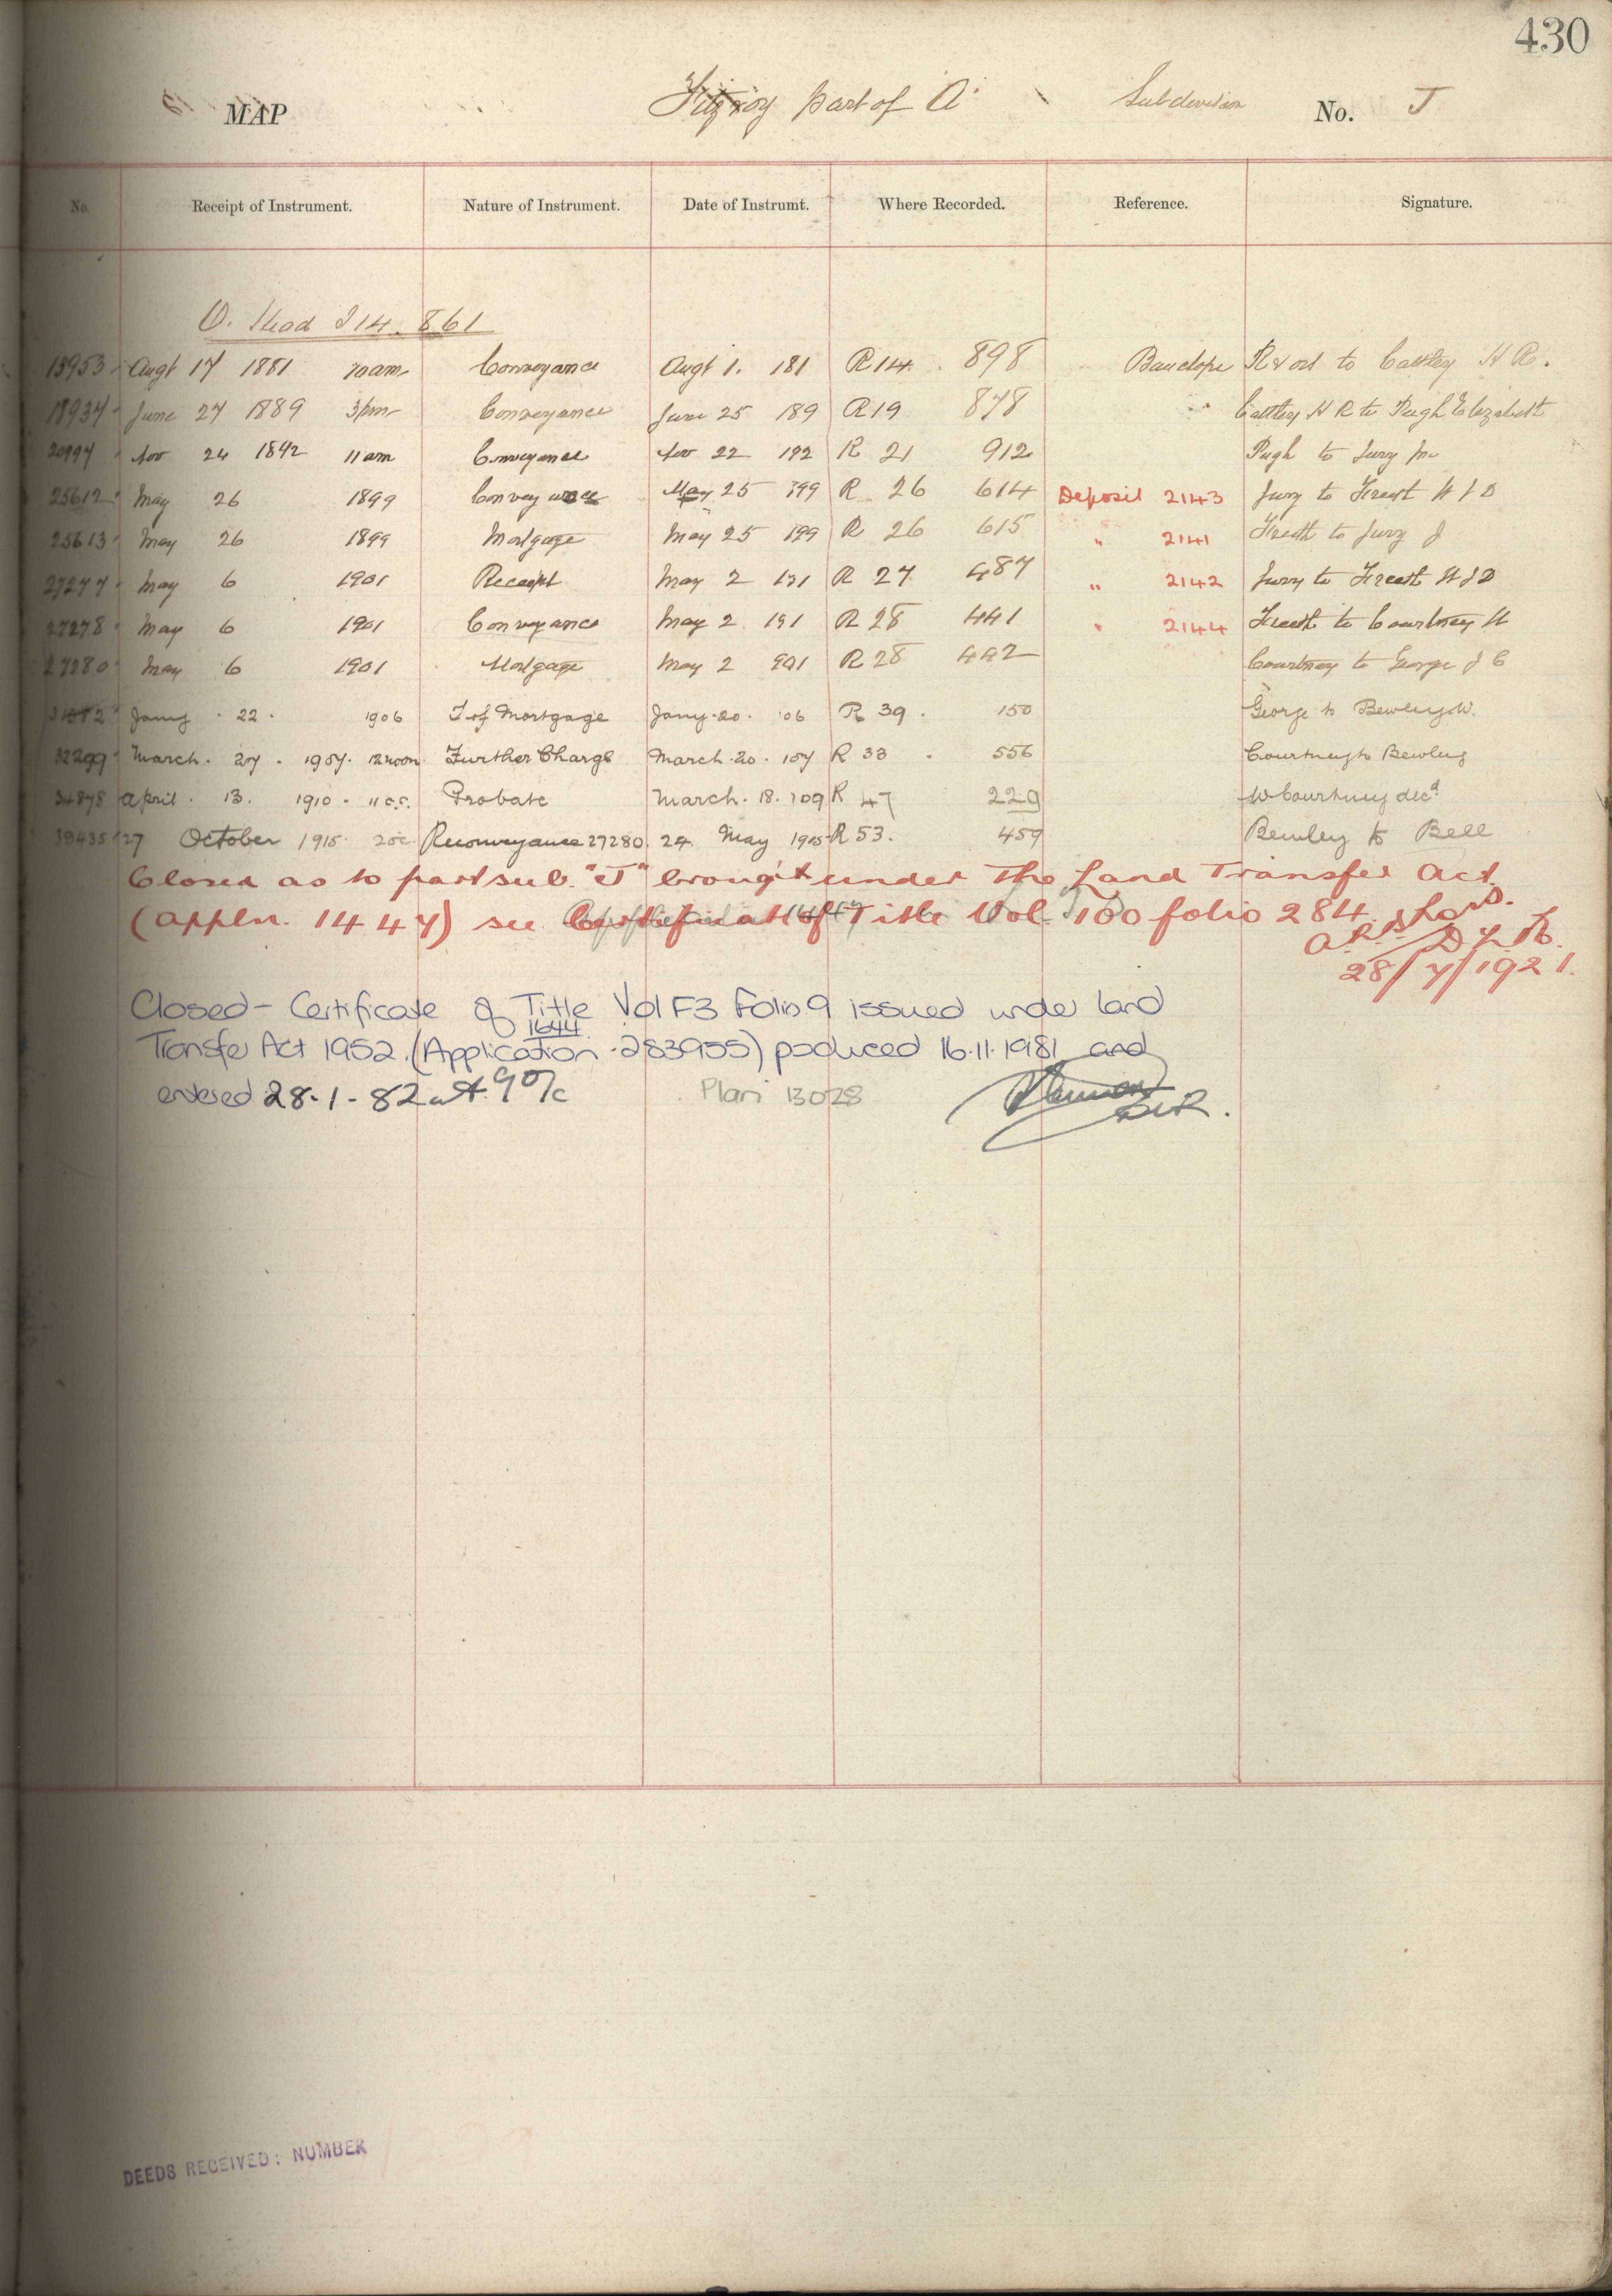 430
MAP Fitzroy part of A Subdivision No. J
No. Receipt of Instrument. Nature of Instrument. Date of Instrumt. Where Recorded. Reference. Signature.
D. 14. 861
13953 Augt 17 1881 10am Conveyance Augt 1. 181 R14. 898 R & ors to Cattley H R.
18934 June 27 1889 3pm Conveyance June 25 189 R19 878 Cattley H R to Pugh Elizabeth
20994 Nov 24 1892 11am Conveyance Nov 22 192 R 21 912 Pugh to Jury
25612 May 26 1899 Conveyance May 25 199 R 26 614 Deposit 2143 Jury to Freeth H J D
25613 May 26 1899 Mortgage May 25 199 R 26 615 " 2141 Freeth to Jury J
27277 May 6 1901 Receipt May 2 191 R 27 487 " 2142 Jury to Freeth H J D
27278 May 6 1901 Conveyance May 2 191 R 28 441 " 2144 Freeth to Courtney W
27280 May 6 1901 Mortgage May 2 1901 R 28 442 Courtney to George J C
Jany. 22. 1906 T of Mortgage Jany. 20. 06 R 39. 150 George to Bewley W.
32299 March. 27. 1907. 12 noon Further Charge March. 20. 107 R 33. 556 Courtney to Bewley
34878 April. 13. 1910. 11 o.c. Probate March. 18. 109 R 47 229 W Courtney decd
39435 27 October 1915. 2oc. Reconveyance 27280 24 May 1915 R 53. 459 Bewley to Bell
Closed as to part sub. "J" brought under The Land Transfer Act.
(Appln. 1447) see Certificate of Title Vol. 100 folio 284.
D.L.R.
28/7/1921.
Closed - Certificate of Title Vol F3 Folio 9 issued under Land
1644
Transfer Act 1952. (Application 283955) produced 16.11.1981 and
entered 28.1.82 at 9 o/c Plan 13028
DLR.
DEEDS RECEIVED: NUMBER